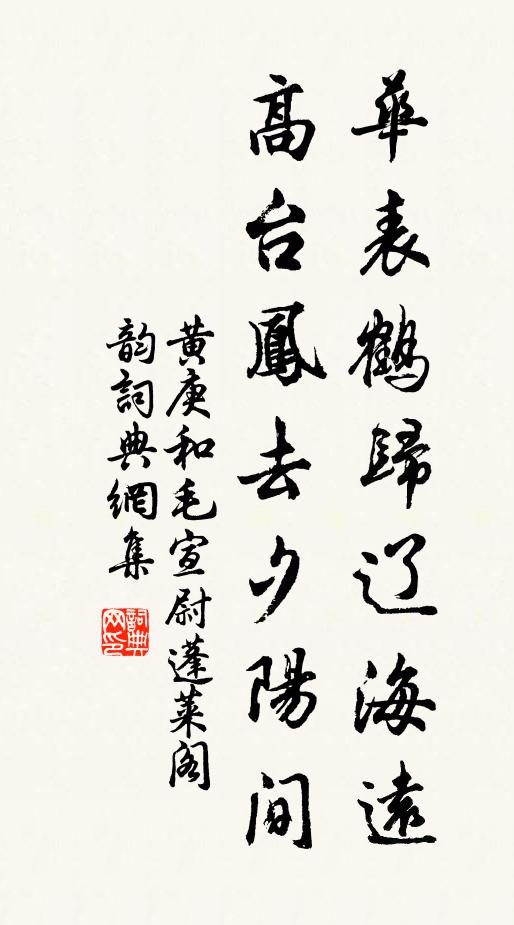 華表鶴歸辽海遠
高台鳳去夕陽间
黄庚和毛宣尉蓬莱阁
韵詞典網集
詞典
网印